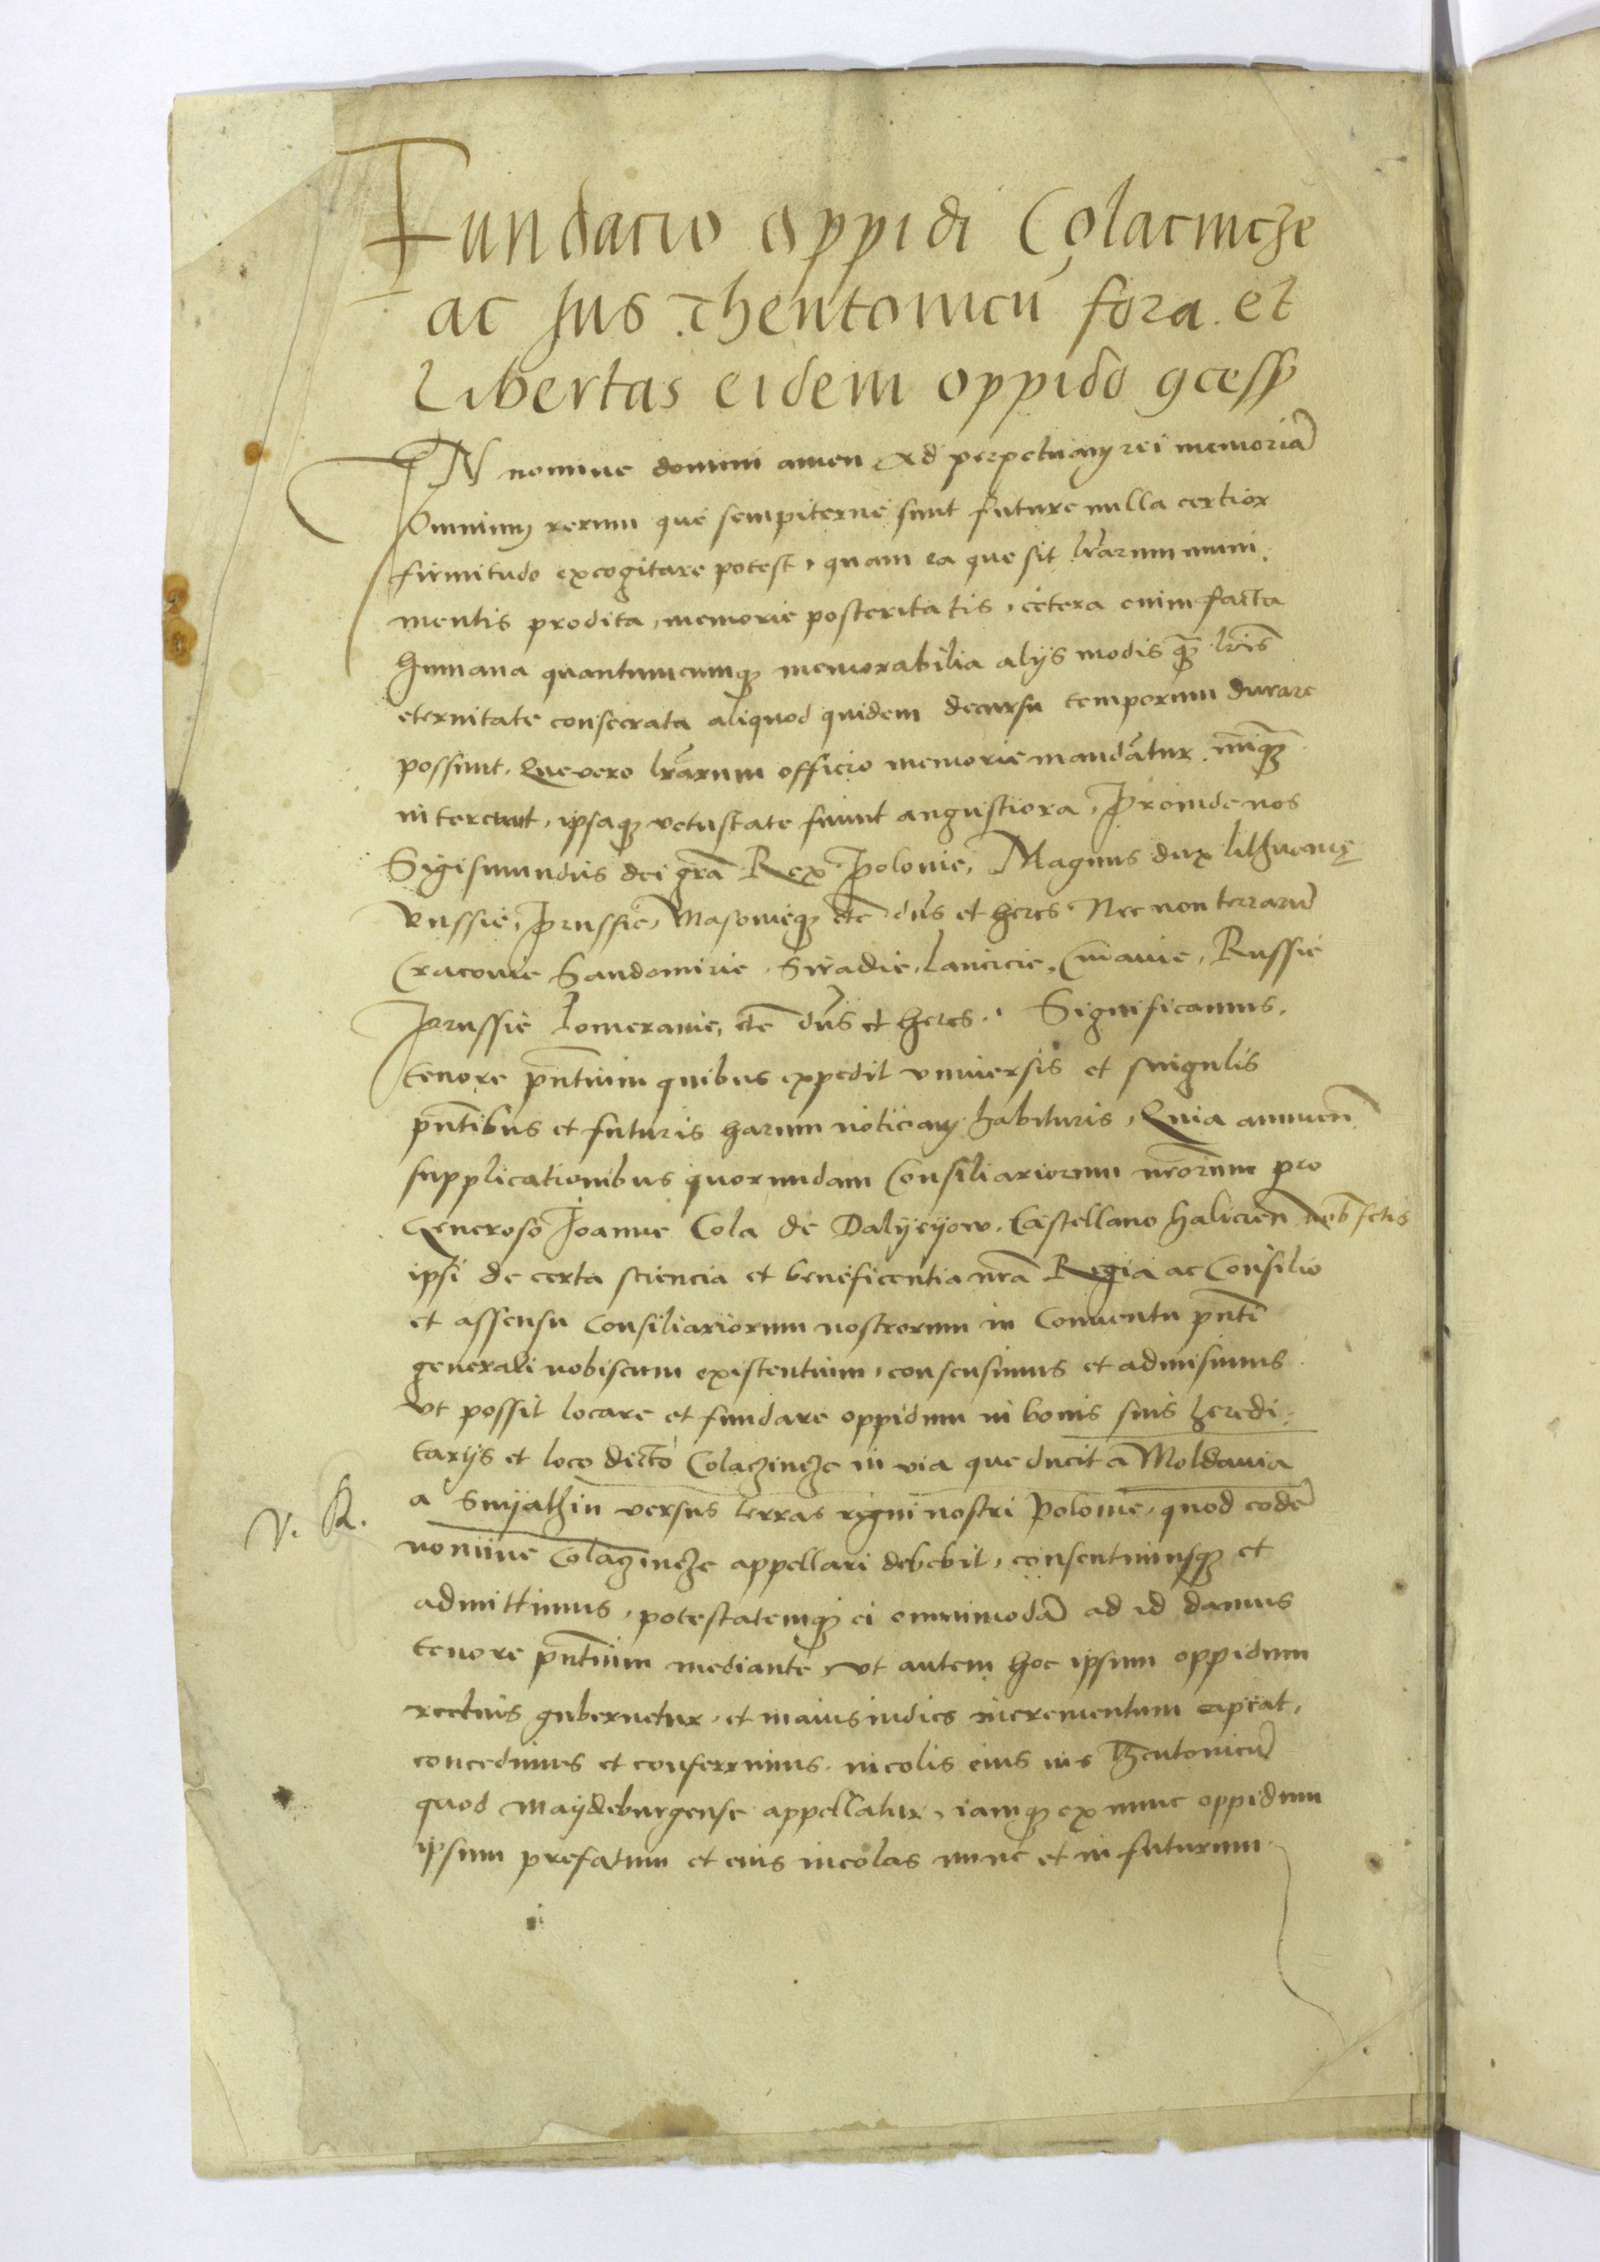 Fundacio oppidi Colacincze
ac Jus Theutonicū fora et
Libertas eidem oppido ꝯcess
IN nomine domini amen Ad perpetuam rei memoriā
Omnium rerum que sempiterne sunt future nulla certior
firmitudo excogitare potest, quam ea que sit lrārum muni
mentis prodita, memorie posteritatis, cetera enim facta
humana quantumcumqꝫ memorabilia alijs modis quā lrīs
eternitate consecrata aliquod quidem decursu temporum durare
possunt. Que vero lrārum officio memorie mandātur nūqꝫ
intereunt, ipsaqꝫ vetustate fiunt angustiora, Proinde nos
Sigismundus dei grā Rex Polonie, Magnus dux lithuanię
Russie, Prussie, Masovieqꝫ etc̄ dn̄s et heres Nec non terrarū
Cracovie Sandomirie Siradie, Lancicie, Cuiavie, Russie
Prussie Pomeranie, etc̄ dn̄s et heres. Significamus
tenore pn̄tium quibus expedit vniversis et singulis
pn̄tibus et futuris harum noticiam habituris, Quia annuen̄
supplicationibus quorundam Consiliariorum nrōrum pro
Generoso Joanne Cola de Dalyeyow Castellano halicien̄ nob fctis
ipsi de certa sciencia et beneficentia nrā Regia ac Consilio
et assensu Consiliariorum nostrorum in Conuentu pn̄ti
generali nobiscum existentium, consensimus et admisimus
vt possit locare et fundare oppidum in bonis suis heredi
tarijs et loco dicto Colaczincze in via que ducit a Moldauia
a Snyathin versus terras regni nostri Polonie, quod eodē
nomine Colaczincze appellari debebit, consentimusqꝫ et
V. R.
admittimus, potestatemqꝫ ei omnimodā ad id damus
tenore pn̄tium mediante, vt autem hoc ipsum oppidum
rectius gubernetur, et maius indies incrementum capiat,
concedimus et conferrimus incolis eius ius Theutonicū
quod maydeburgense appellatur, iamqꝫ ex nunc oppidum
ipsum prefatum et eius incolas nunc et in futurum